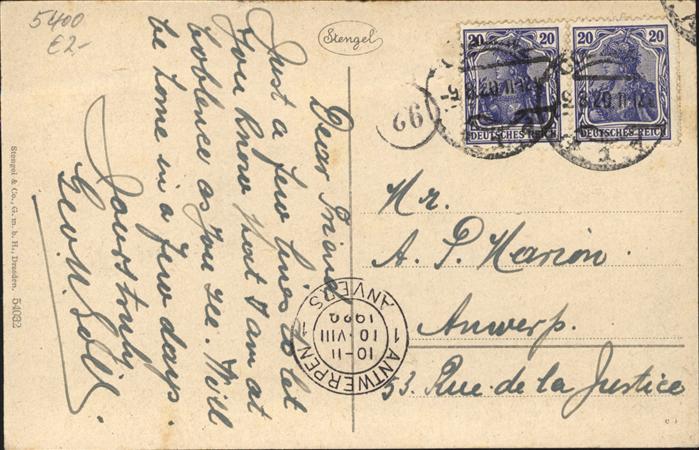 5400
£2-
Stengel
Dear Friend
Just a few lines to let
you know that I am at
Coblence as you see. Will
be home in a few days.
Yours truly
Stengel & Co., G. m. b. H., Dresden. 54032
20 20
20 20
DEUTSCHES REICH
DEUTSCHES REICH
92
Mr.
A. P. Marion
Antwerp.
53. Rue de la Justice
1 ANTWERPEN 1
10-11
10·VIII
1920
ANVERS